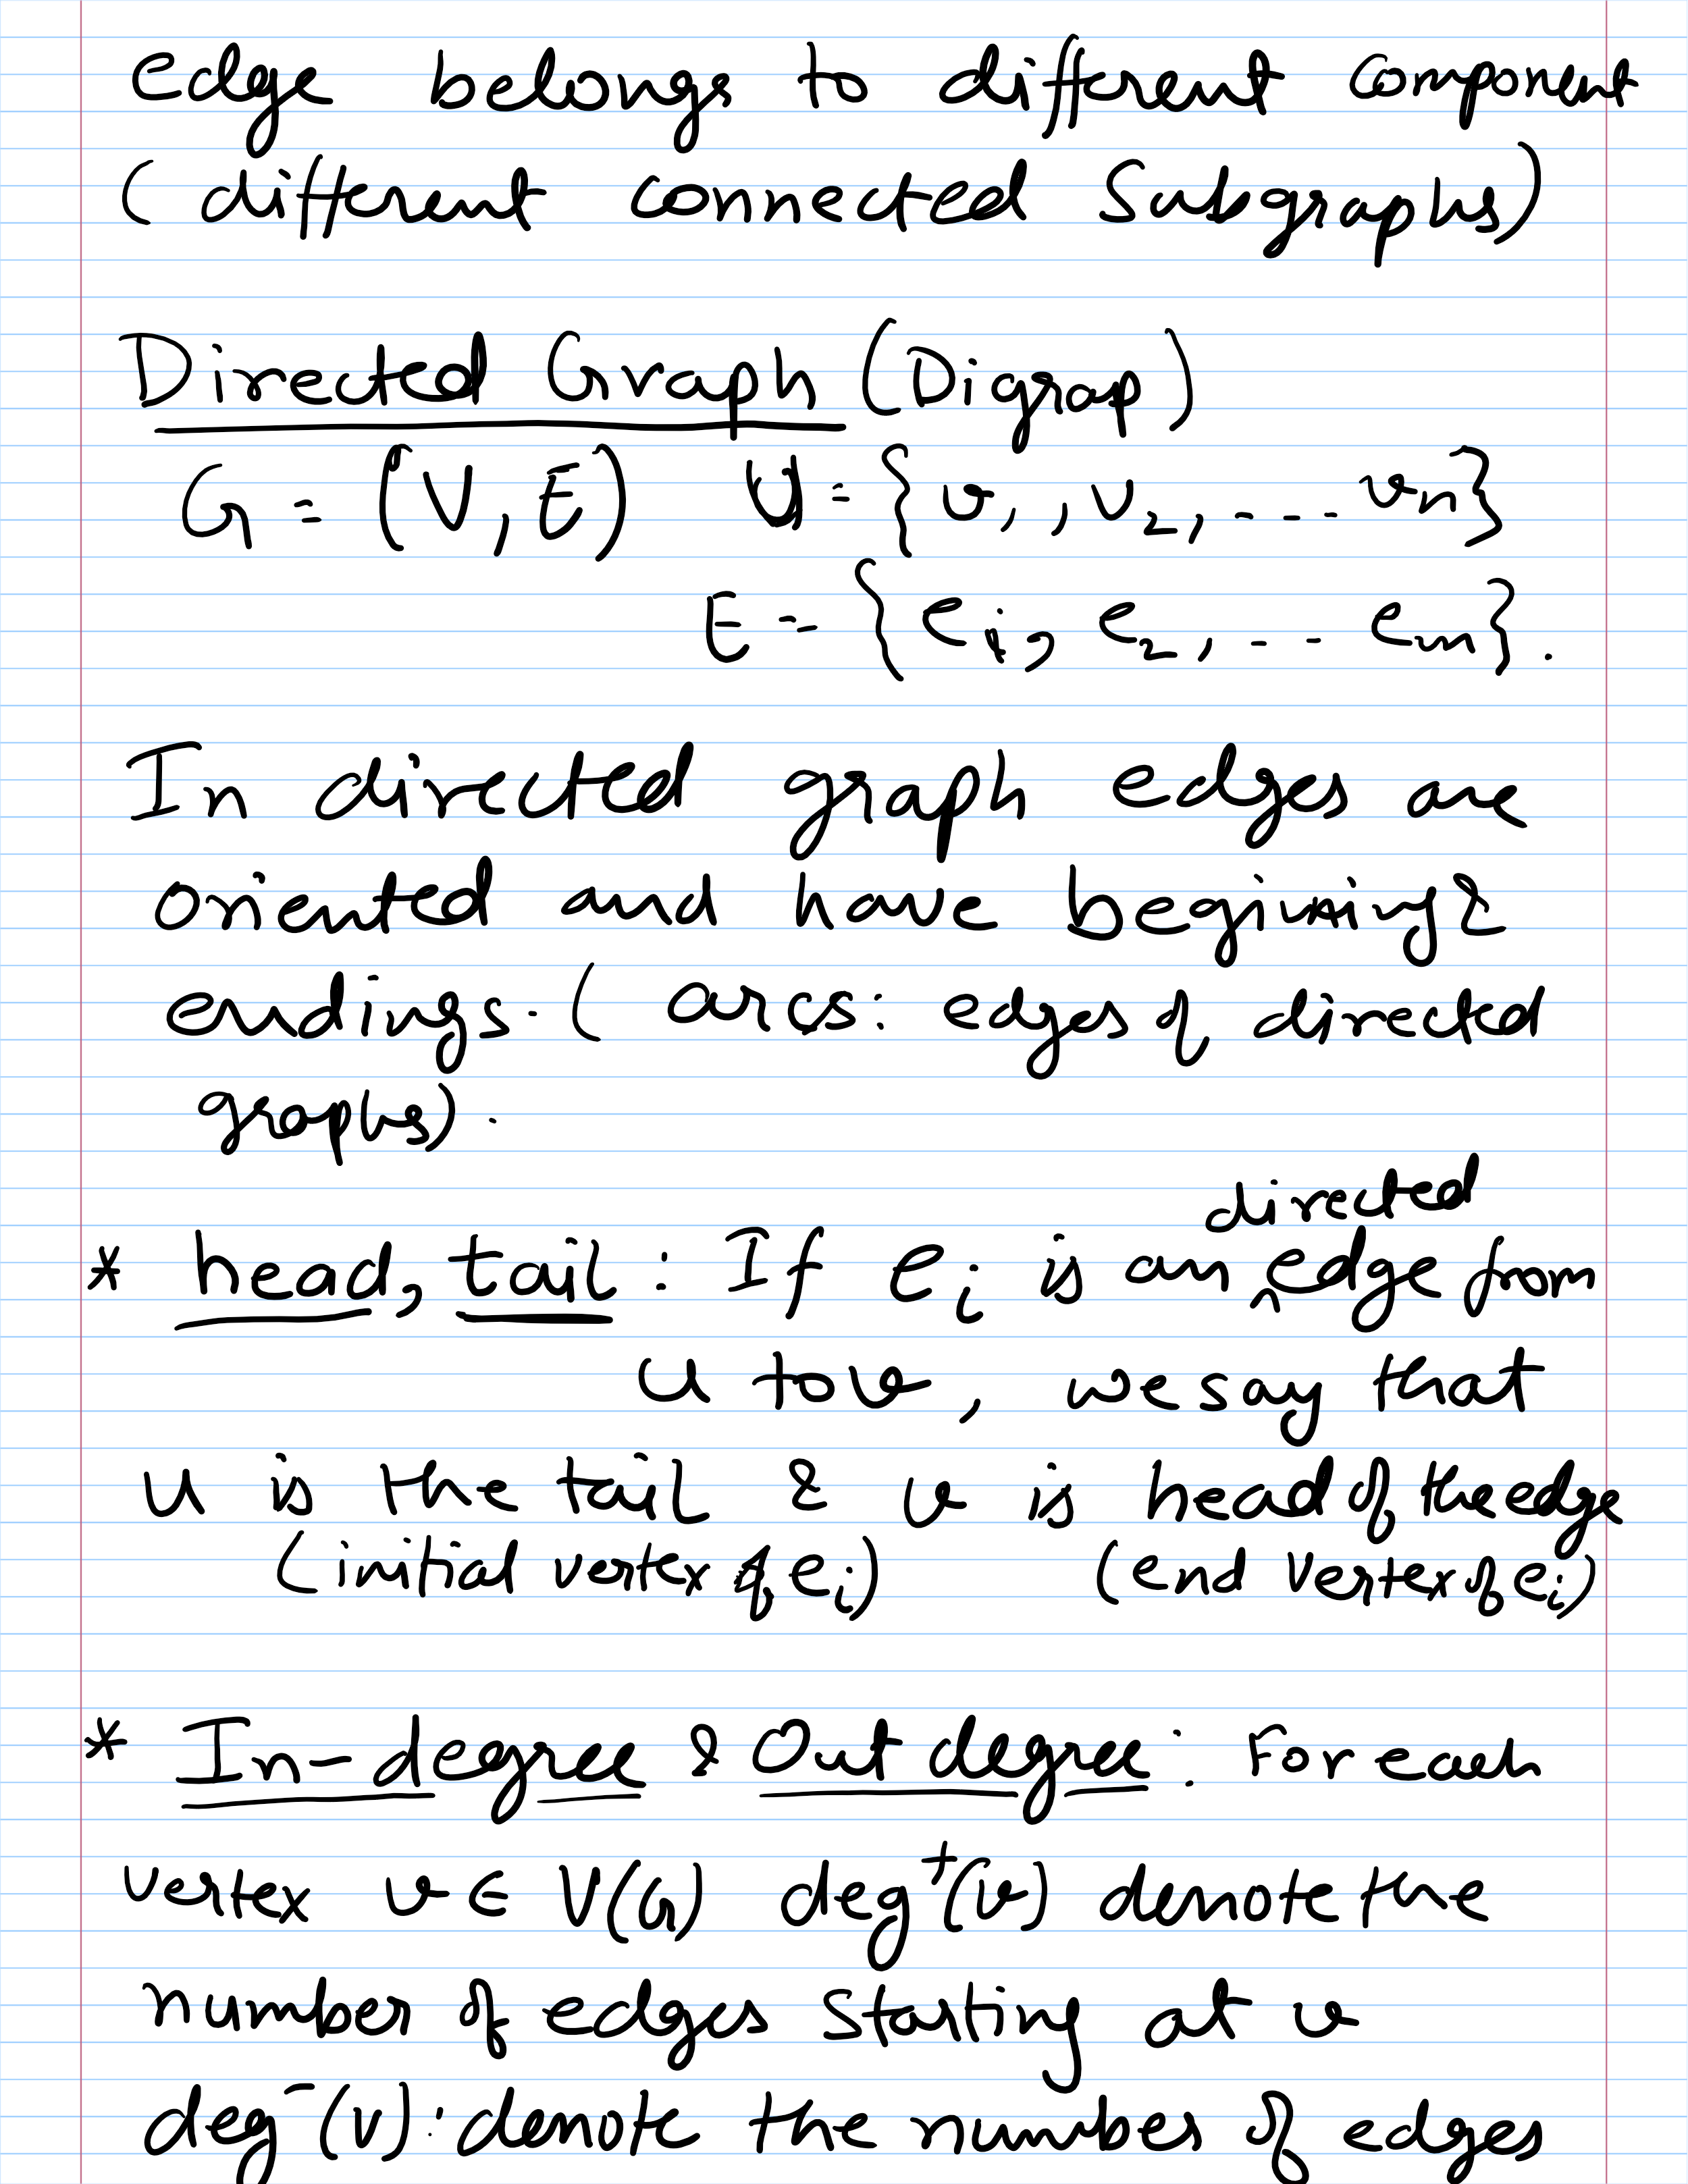 edge belongs to different component
(different connected Subgraphs)
Directed Graph (Digrap)
G = (V, E) V = {v₁, v₂, ... vₙ}
E = {e₁, e₂, ... eₘ}.
In directed graph edges are
oriented and have begining &
endings. (arcs: edges of directed
graphs).
directed
* head, tail : If eᵢ is an ^ edge from
u to v, we say that
u is the tail & v is head of the edge
(initial vertex of eᵢ) (end vertex of eᵢ)
* In-degree & Out degree : For each
vertex v ∈ V(G) deg⁺(v) denote the
number of edges starting at v
deg⁻(v) : denote the number of edges